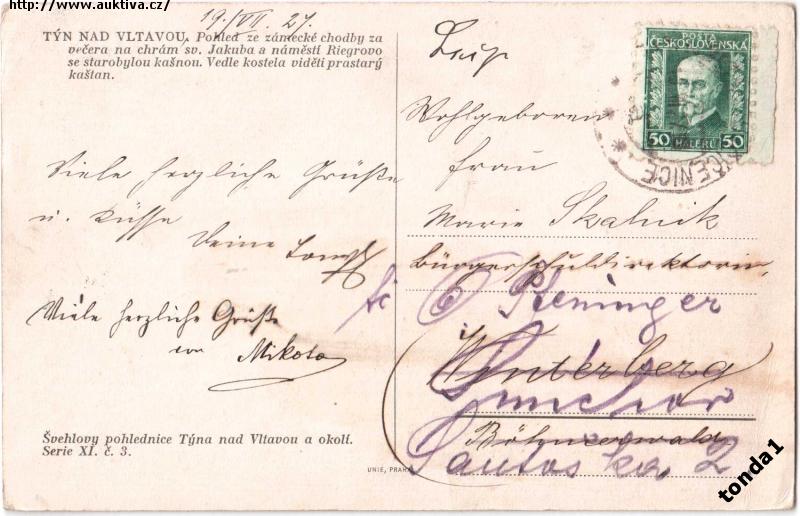 http://www.auktiva.cz/
19./VII. 27.
TÝN NAD VLTAVOU. Pohled ze zámecké chodby za
večera na chrám sv. Jakuba a náměstí Riegrovo
se starobylou kašnou. Vedle kostela viděti prastarý
kaštan.
Viele herzliche Grüße
u. Küsse
Deine
Viele herzliche Grüße
von Mikola
Švehlovy pohlednice Týna nad Vltavou a okolí.
Serie XI. č. 3.
UNIE, PRAHA
POŠTA
ČESKOSLOVENSKÁ
50 HALÉŘŮ 50
Wohlgeboren
Frau
Marie Skalnik
Bürgerschuldirektorin
Winterberg
Böhmerwald
2
tonda1